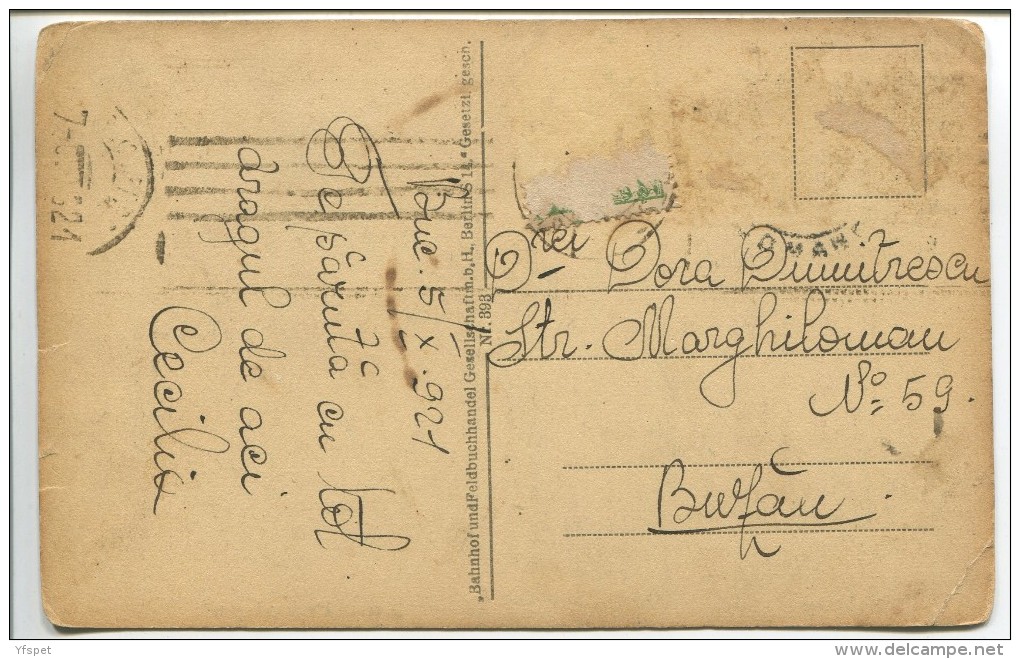 Buc. 5/X. 921
Te sărută cu tot
dragul de aci
Cecilia
„Bahnhof und Feldbuchhandel Gesellschaft m.b.H., Berlin S 14." Gesetzl. gesch.
Nr. 393
Drei Dora Dumitrescu
Str. Marghiloman
No 59.
Buzău
Yfspet
delcampe.net